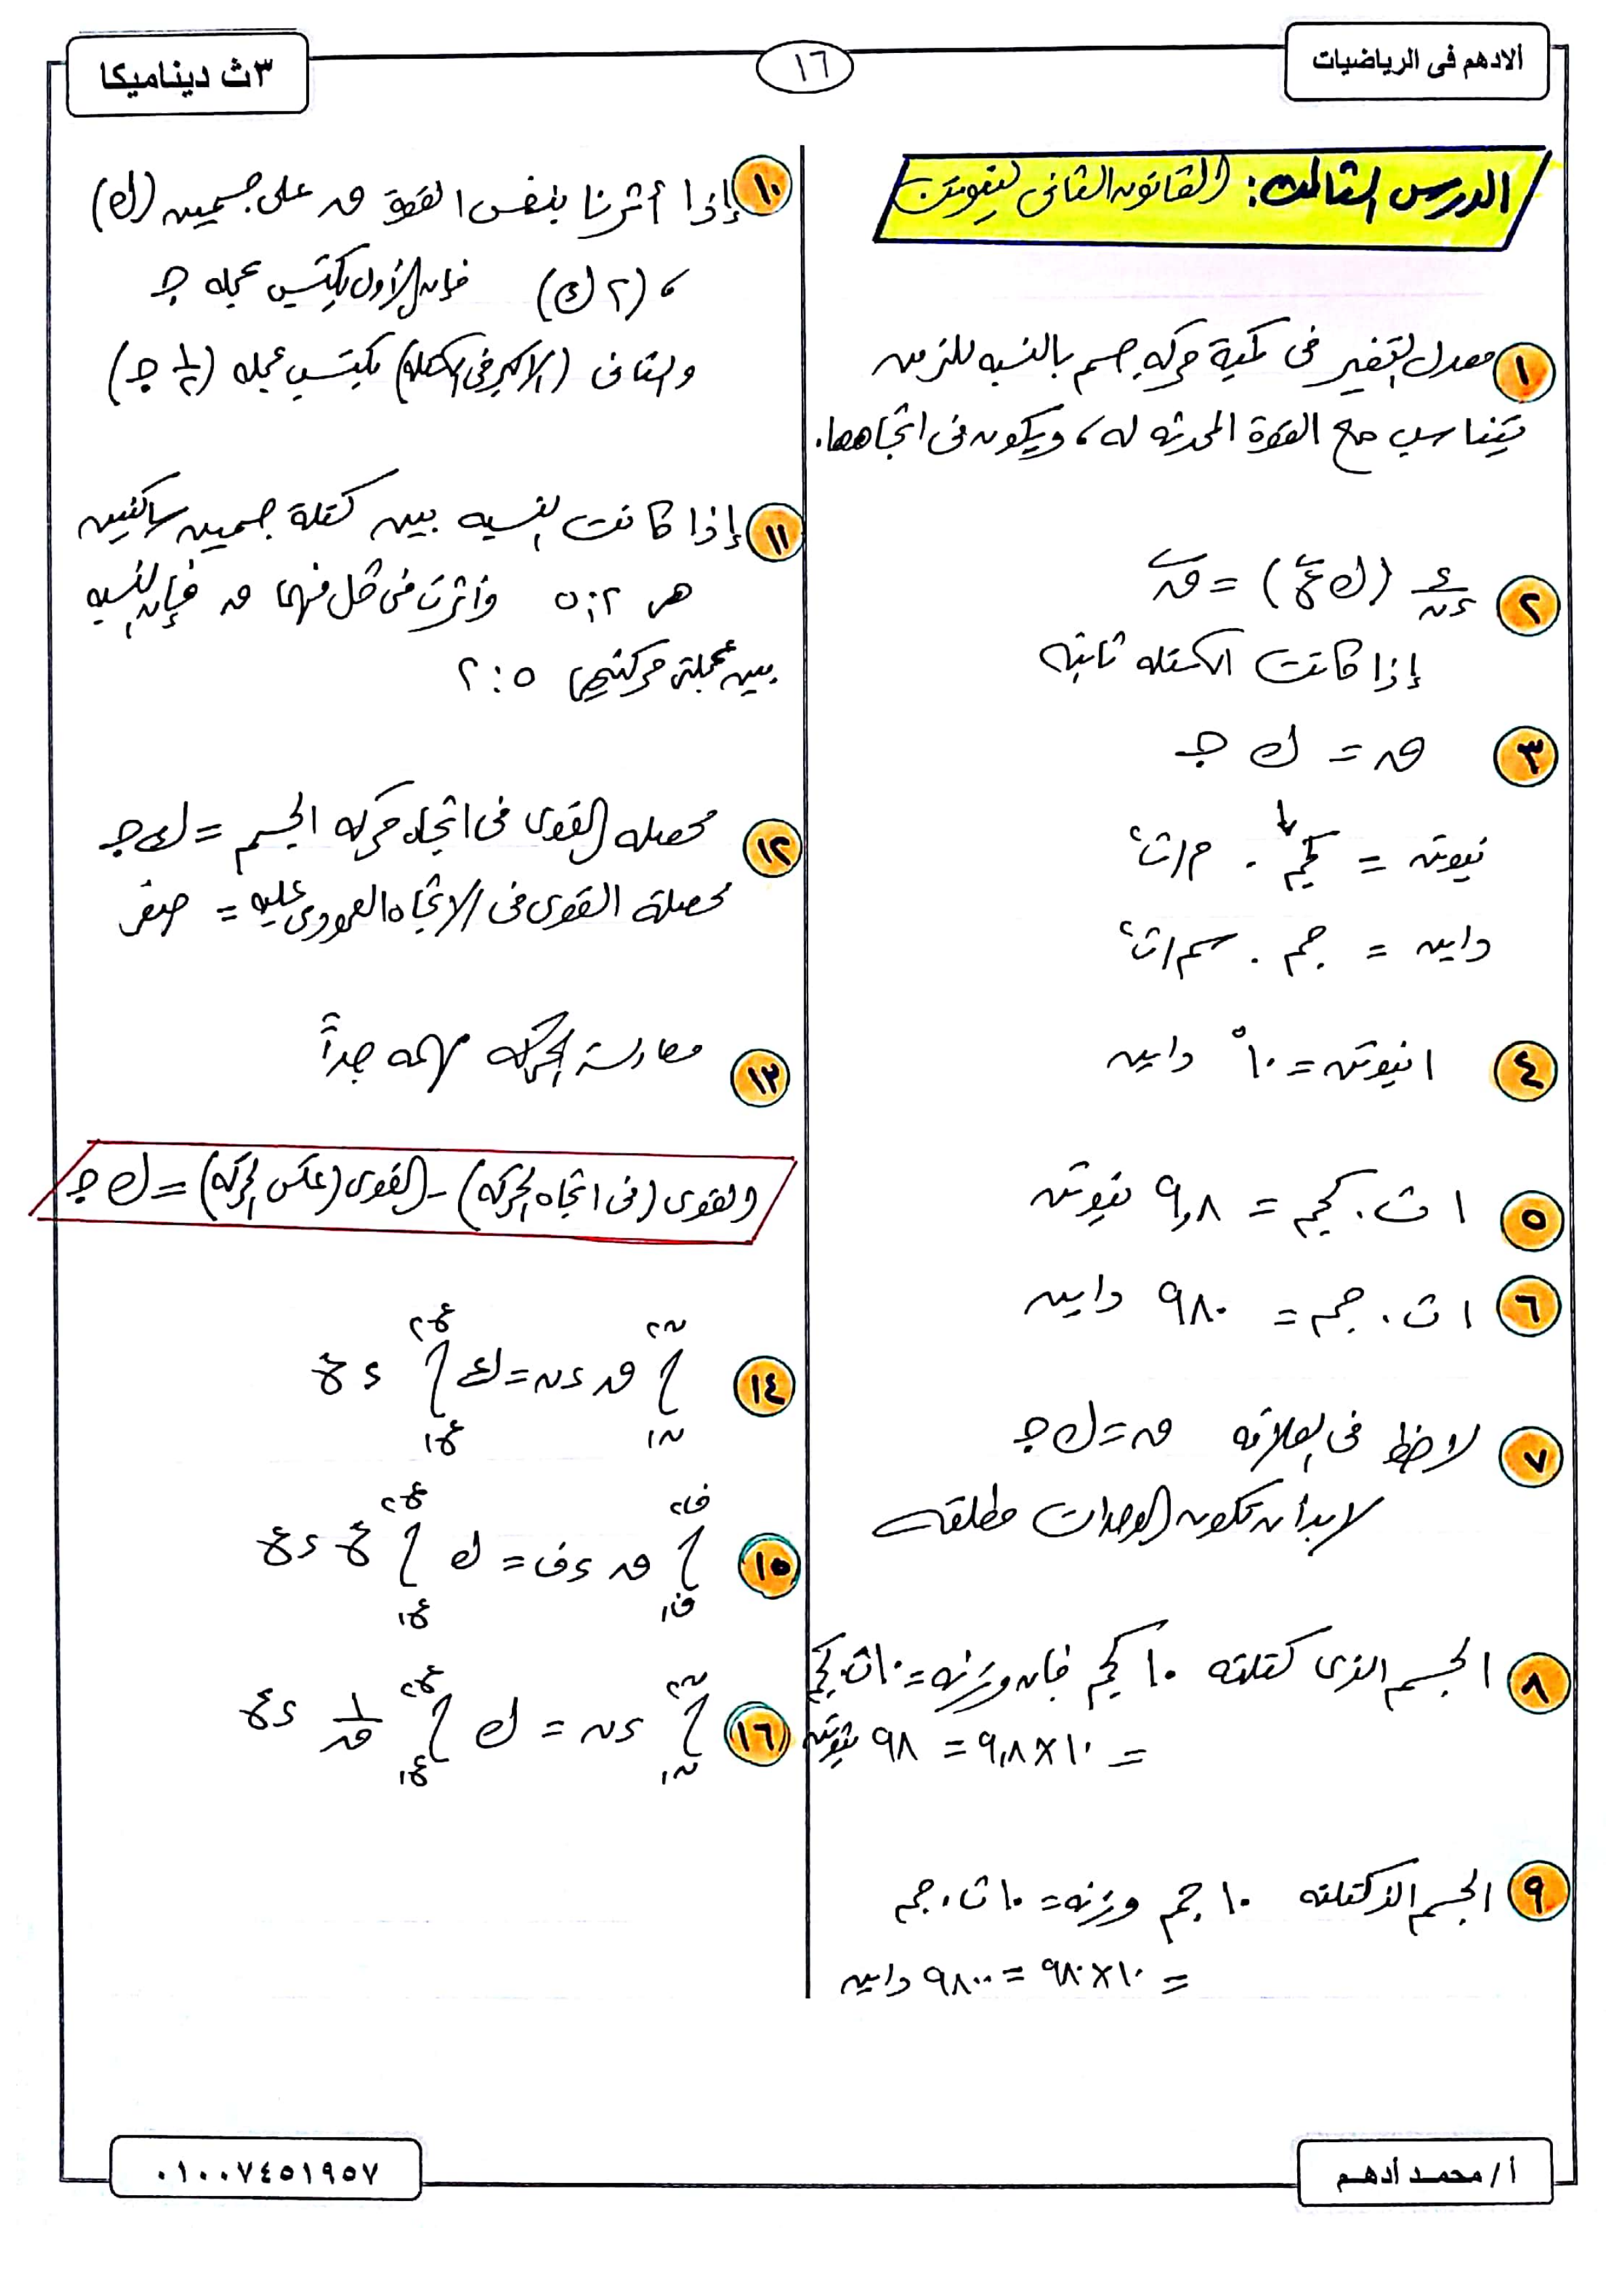 الادهم فى الرياضيات
١٦
٣ث ديناميكا
الدرس الثالث: القانون الثانى لنيوتن
١ معدل التغير فى كمية حركة جسم بالنسبه للزمن
يتناسب مع القوة المحدثه له، ويكون فى اتجاهها.
٢ ء/ءن (ك ع) = ق
إذا كانت الكتله ثابته
٣ ق = ك جـ
نيوتن = كجم . م/ث٢
داين = جم . سم/ث٢
٤ ١ نيوتن = ١٠^٥ داين
٥ ١ ث.كجم = ٩,٨ نيوتن
٦ ١ ث.جم = ٩٨٠ داين
٧ لاحظ فى العلاقه ق = ك جـ
لابد أن تكون الوحدات مطلقه
٨ الجسم الذى كتلته ١٠ كجم فإن وزنه = ١٠ ث.كجم
= ١٠×٩,٨ = ٩٨ نيوتن
٩ الجسم الذ كتلته ١٠ جم وزنه = ١٠ ث.جم
= ١٠×٩٨٠ = ٩٨٠٠ داين
١٠ إذا أثرنا بنفس القوة ق على جسمين (ك)
، (٢ ك) فإن الأول يكتسب عجله جـ
والثانى (الاكبر فى الكتله) يكتسب عجله (١/٢ جـ)
١١ إذا كانت النسبه بين كتلة جسمين ساكنين
هى ٢:٥ وأثرت فى كل منهما ق فإن النسبه
بين عجلة حركتيهما ٥:٢
١٢ محصله القوى فى اتجاه حركه الجسم = ك جـ
محصلة القوى فى الاتجاه العمودى عليه = صفر
١٣ معادلة الحركه مهمه جداً
القوى (فى اتجاه الحركه) - القوى (عكس الحركه) = ك جـ
١٤ ∫ن١^ن٢ ق ءن = ك ∫ع١^ع٢ ء ع
١٥ ∫ف١^ف٢ ق ءف = ك ∫ع١^ع٢ ع ء ع
١٦ ∫ن١^ن٢ ءن = ك ∫ع١^ع٢ ١/ق ءع
أ/ محمد أدهم
٠١٠٠٧٤٥١٩٥٧